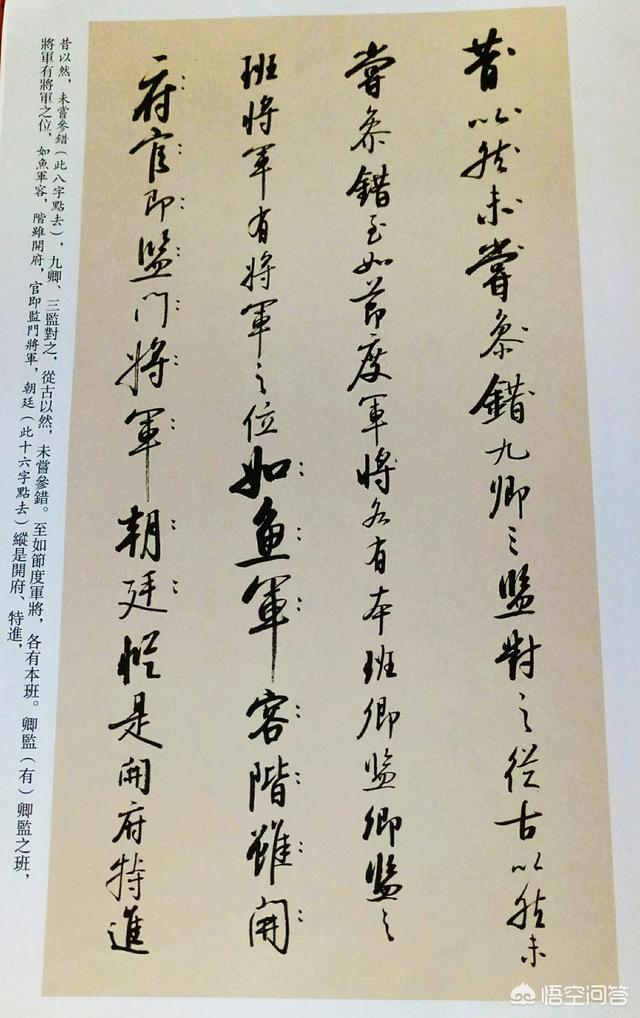 昔以然未嘗參錯九卿三監對之從古以然未
嘗參錯至如節度軍將各有本班卿監卿監之
班將軍有將軍之位如魚軍容階雖開
府官即監門將軍朝廷縱是開府特進
昔以然，未嘗參錯（此八字點去），九卿、三監對之，從古以然，未嘗參錯。至如節度軍將，各有本班。卿監（有）卿監之班，
將軍有將軍之位，如魚軍容，階雖開府，官即監門將軍，朝廷（此十六字點去）縱是開府、特進，
悟空问答